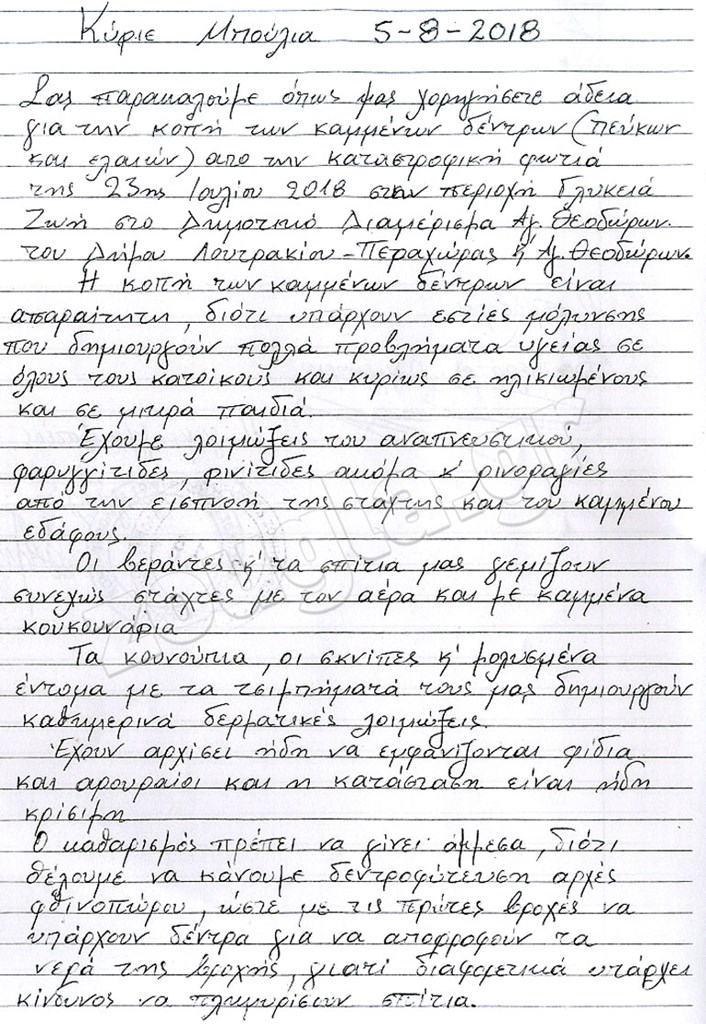 Κύριε Μπούλια 5-8-2018
Σας παρακαλούμε όπως μας χορηγήσετε άδεια
για την κοπή των καμμένων δέντρων (πεύκων
και ελαιών) απο την καταστροφική φωτιά
της 23ης Ιουλίου 2018 στην περιοχή Γλυκειά
Ζωή στο Δημοτικό Διαμέρισμα Αγ. Θεοδώρων.
του Δήμου Λουτρακίου-Περαχώρας κ' Αγ. Θεοδώρων.
Η κοπή των καμμένων δέντρων είναι
απαραίτητη, διότι υπάρχουν εστίες μόλυνσης
που δημιουργούν πολλά προβλήματα υγείας σε
όλους τους κατοίκους και κυρίως σε ηλικιωμένους
και σε μικρά παιδιά.
Έχουμε λοιμώξεις του αναπνευστικού,
φαρυγγίτιδες, ρινίτιδες ακόμα κ' ρινοραγίες
απο την εισπνοή της στάχτης και του καμμένου
εδάφους.
Οι βεράντες κ' τα σπίτια μας γεμίζουν
συνεχώς στάχτες με τον αέρα και με καμμένα
κουκουνάρια
Τα κουνούπια, οι σκνίπες κ' μολυσμένα
έντομα με τα τσιμπήματά τους μας δημιουργούν
καθημερινά δερματικές λοιμώξεις.
Έχουν αρχίσει ήδη να εμφανίζονται φίδια
και αρουραίοι και η κατάσταση είναι ήδη
κρίσιμη
Ο καθαρισμός πρέπει να γίνει άμμεσα, διότι
θέλουμε να κάνουμε δεντροφύτευση αρχές
φθινοπώρου, ώστε με τις πρώτες βροχές να
υπάρχουν δέντρα για να απορροφούν τα
νερά της βροχής, γιατί διαφορετικά υπάρχει
κίνδυνος να πλημυρίσουν σπίτια.
zougla.gr